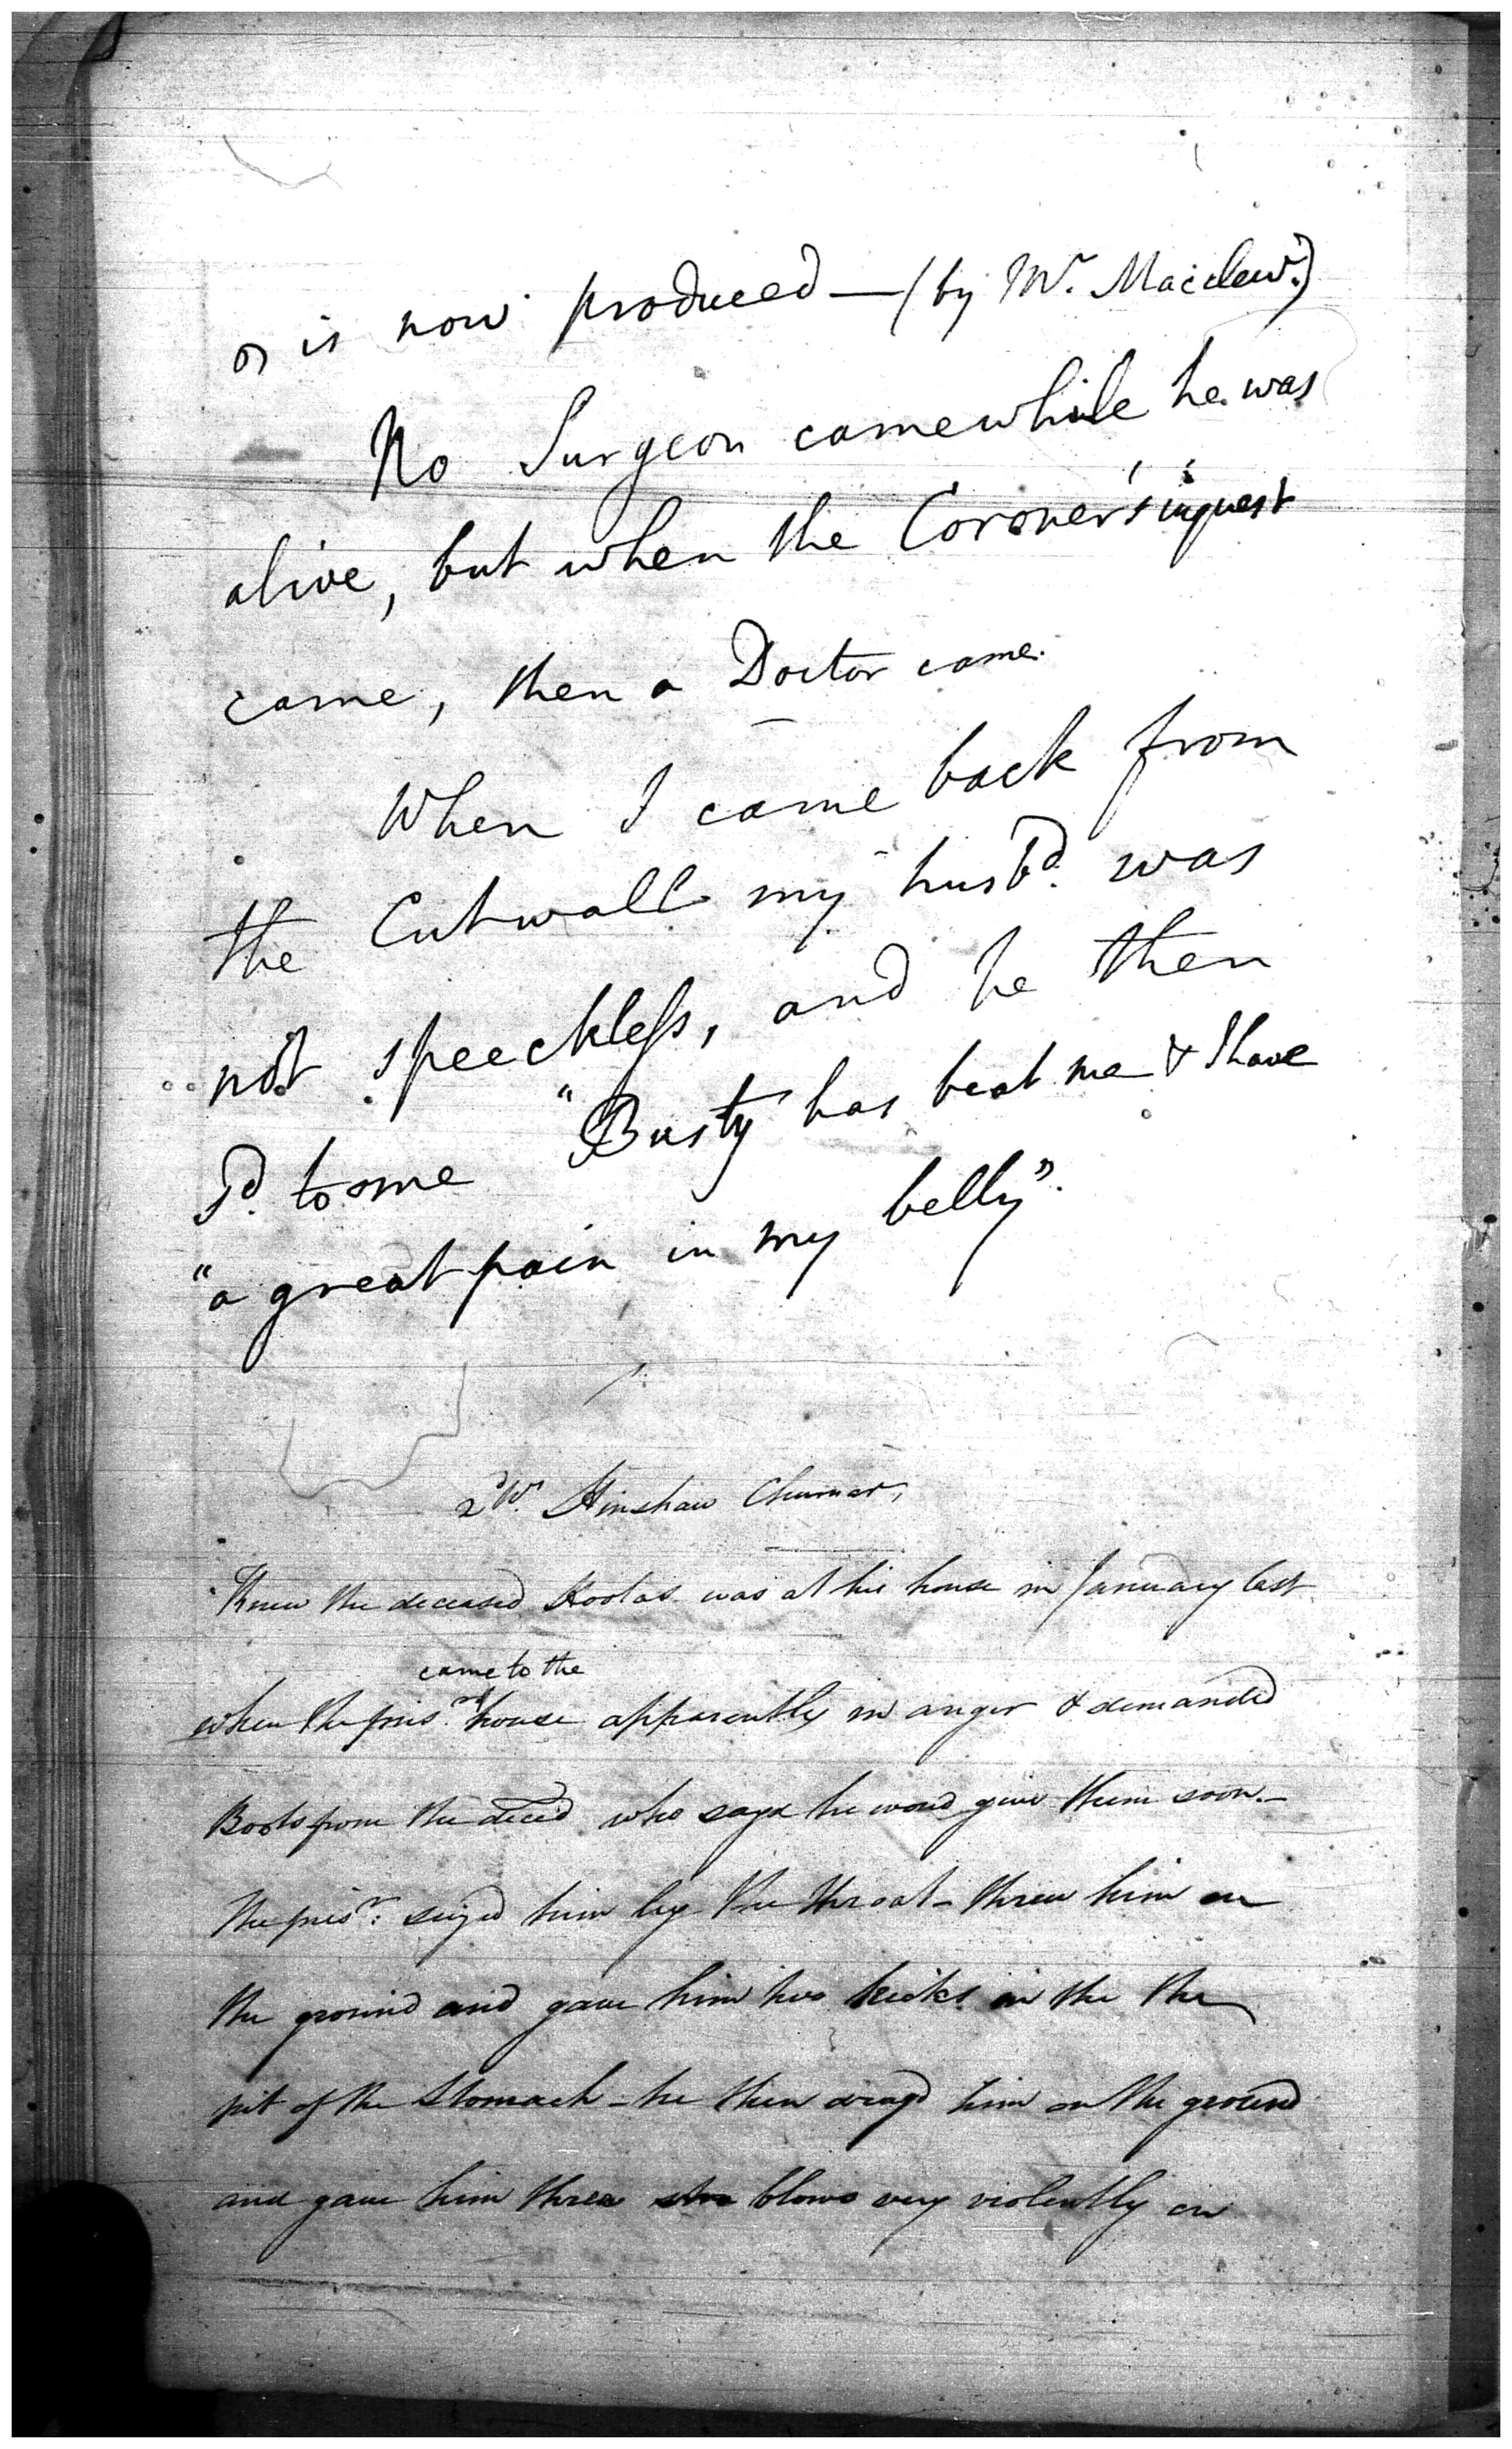 & is now produced — (by Mr. Macclew.)
No Surgeon came while he was
alive, but when the Coroner's inquest
came, then a Doctor came.
When I came back from
the Cutwall my husbd. was
not speechless, and he then
sd. to me "Busty has beat me & I have
"a great pain in my belly".
2d Ws. Hinshaw Chumar,
Knew the deceased Kootas was at his house in January last
came to the
when the prisr. house apparently in anger & demanded
Boots from the decd who says he woud give them soon.—
The prisr: seizd him by the throat - threw him on
the ground and gave him two kicks in the the
pit of the Stomach - he then dragd him on the ground
and gave him three blows very violently on